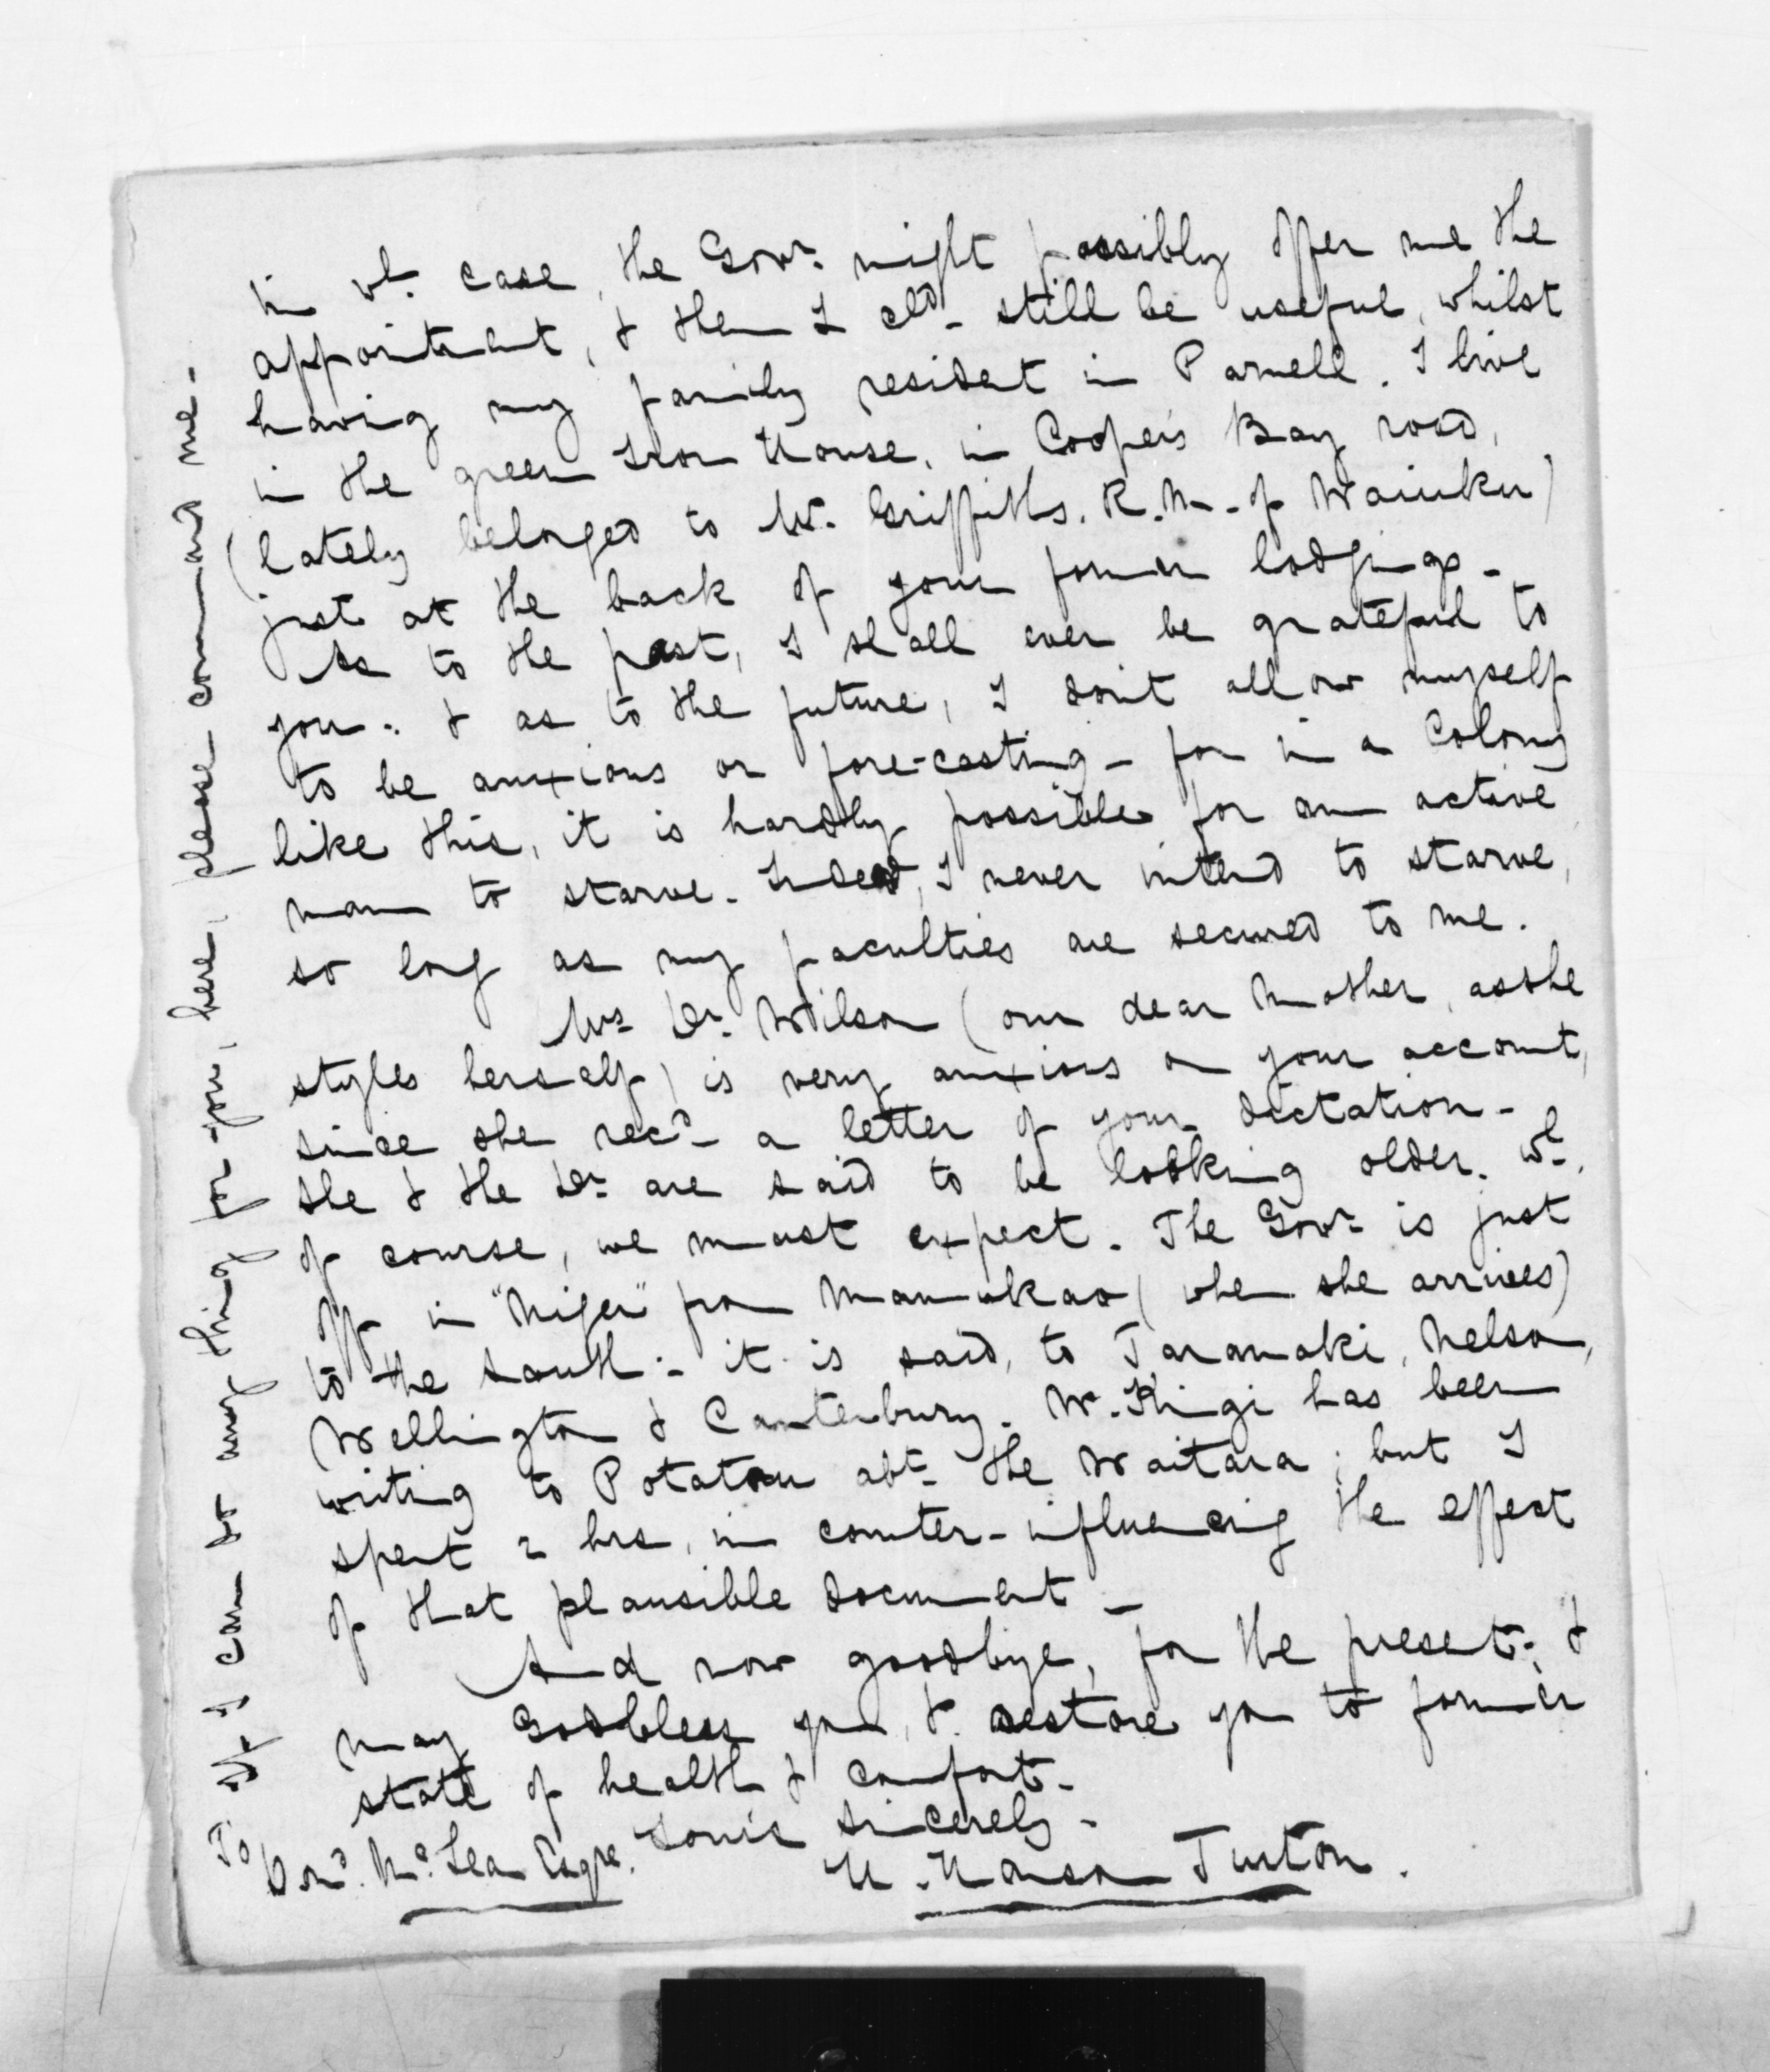 in wh. case, the Govr. might possibly offer me the
appointment, & then I cld. still be useful, whilst
having my family resident in Parnell. I live
in the green Iron House, in Cooper's Bay road,
(lately belonged to Mr. Griffiths. R.M. of Waiuku)
just at the back of your former lodgings.
As to the past, I shall ever be grateful to
you: & as to the future, I don't allow myself
to be anxious or fore-casting - for in a Colony
like this, it is hardly possible for an active
man to starve. Indeed, I never intend to starve,
so long as my faculties are secured to me.
Mrs Dr. Wilson (our dear Mother, as she
styles herself) is very anxious on your account,
since she recd. a letter of your dictation -
She & the Dr. are said to be looking older. wh.
of course, we must expect. The Govr. is just
off in "Niger" from Manukao (when she arrives)
to the South: it is said, to Taranaki, Nelson,
Wellington & Canterbury. W. Kingi has been
writing to Potatau abt. the Waitara; but I
spent 2 hrs. in counter-influencing the effect
of that plausible document -
And now goodbye, for the present; &
may God bless you, & restore you to former
state of health & comfort.
Yours Sincerely -
H. Hanson Turton.
To
Dond. McLean Esqre.
If I can do any thing for you, here, please command me.